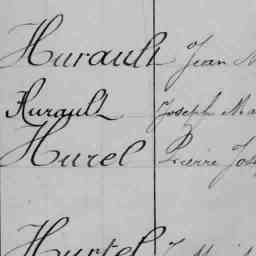 Hurault Jean M
Hurault Joseph Ma
Hurel Pierre Jos
Hurtel